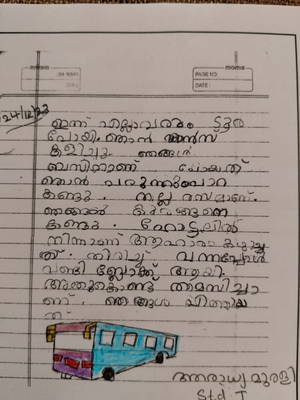 PAGE NO.
DATE :
24/12/23
ഇന്ന് എല്ലാവരും ടൂർ
പോയി. ഞാൻ ഡാൻസ്
കളിച്ചു. ഞങ്ങൾ
ബസിലാണ് പോയത്
ഞാൻ പരുന്തുംപാറ
കണ്ടു. നല്ല രസമാണ്.
ഞങ്ങൾ
കണ്ടു. ഹോട്ടലിൽ
നിന്നാണ് ആഹാരം കഴിച്ച
ത്. തിരിച്ച് വന്നപ്പോൾ
വണ്ടി ബ്ലോക്ക് ആയി.
അതുകൊണ്ട് താമസിച്ചാ
ണ്. ഞങ്ങൾ എത്തിയ
ത്
ആരാധ്യ മുരളി
Std I